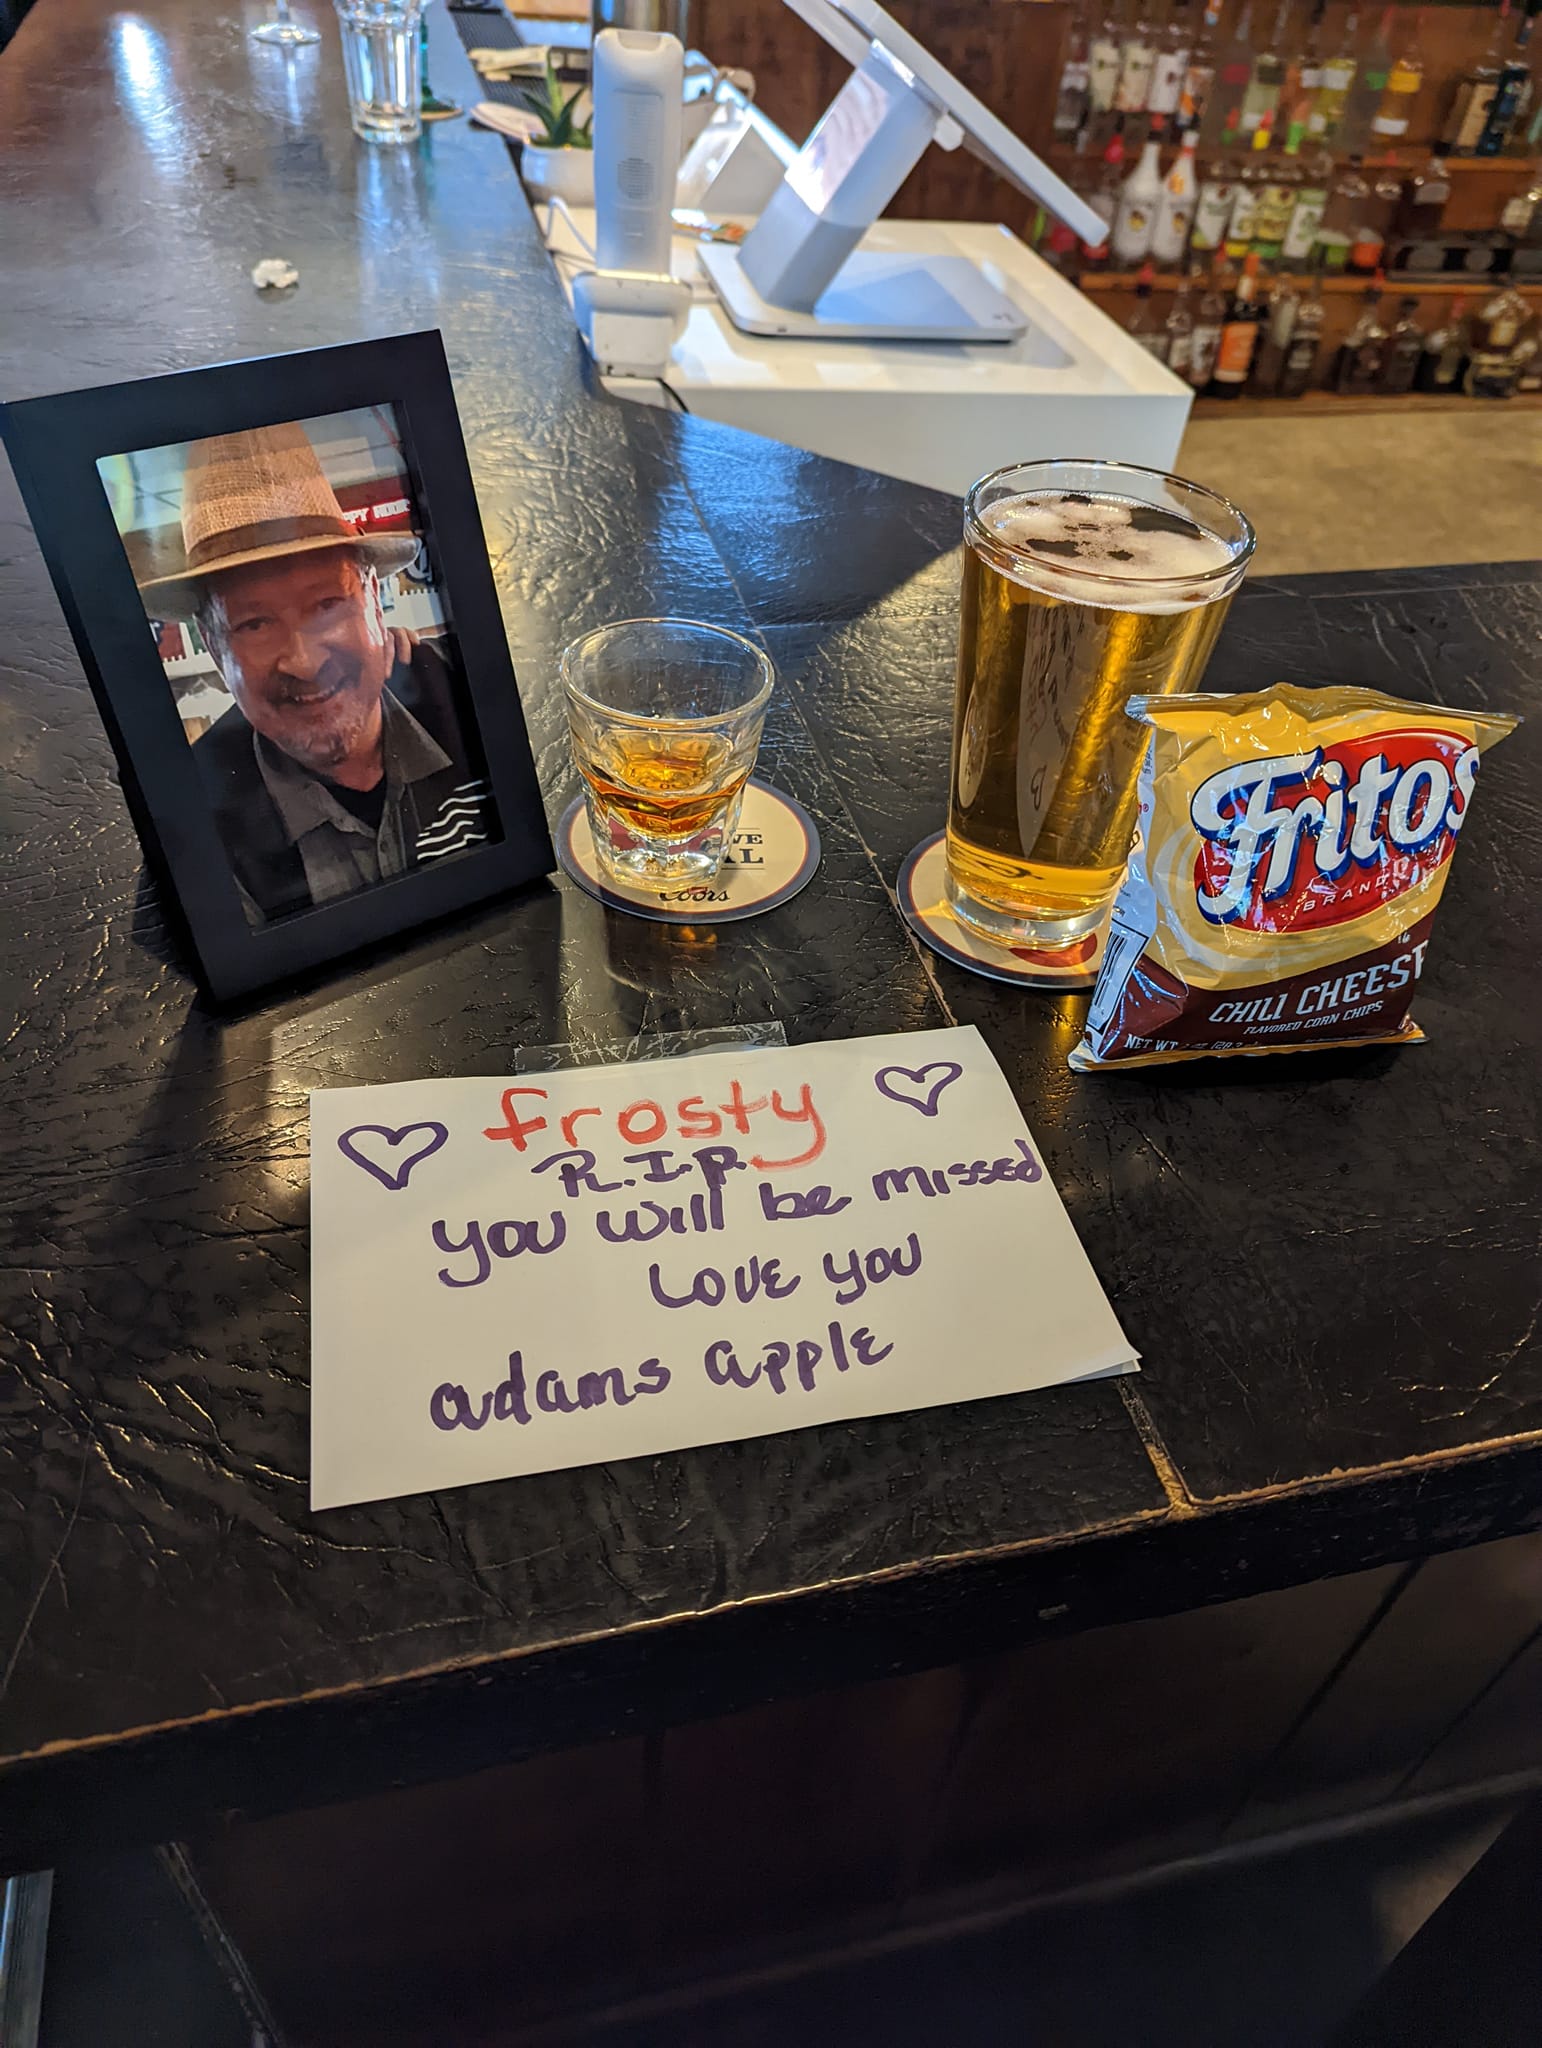 PPY HOUR
VE
AL
Coors
Fritos
BRAND
CHILI CHEESE
FLAVORED CORN CHIPS
NET WT.
frosty
R.I.P.
you will be missed
Love you
adams apple